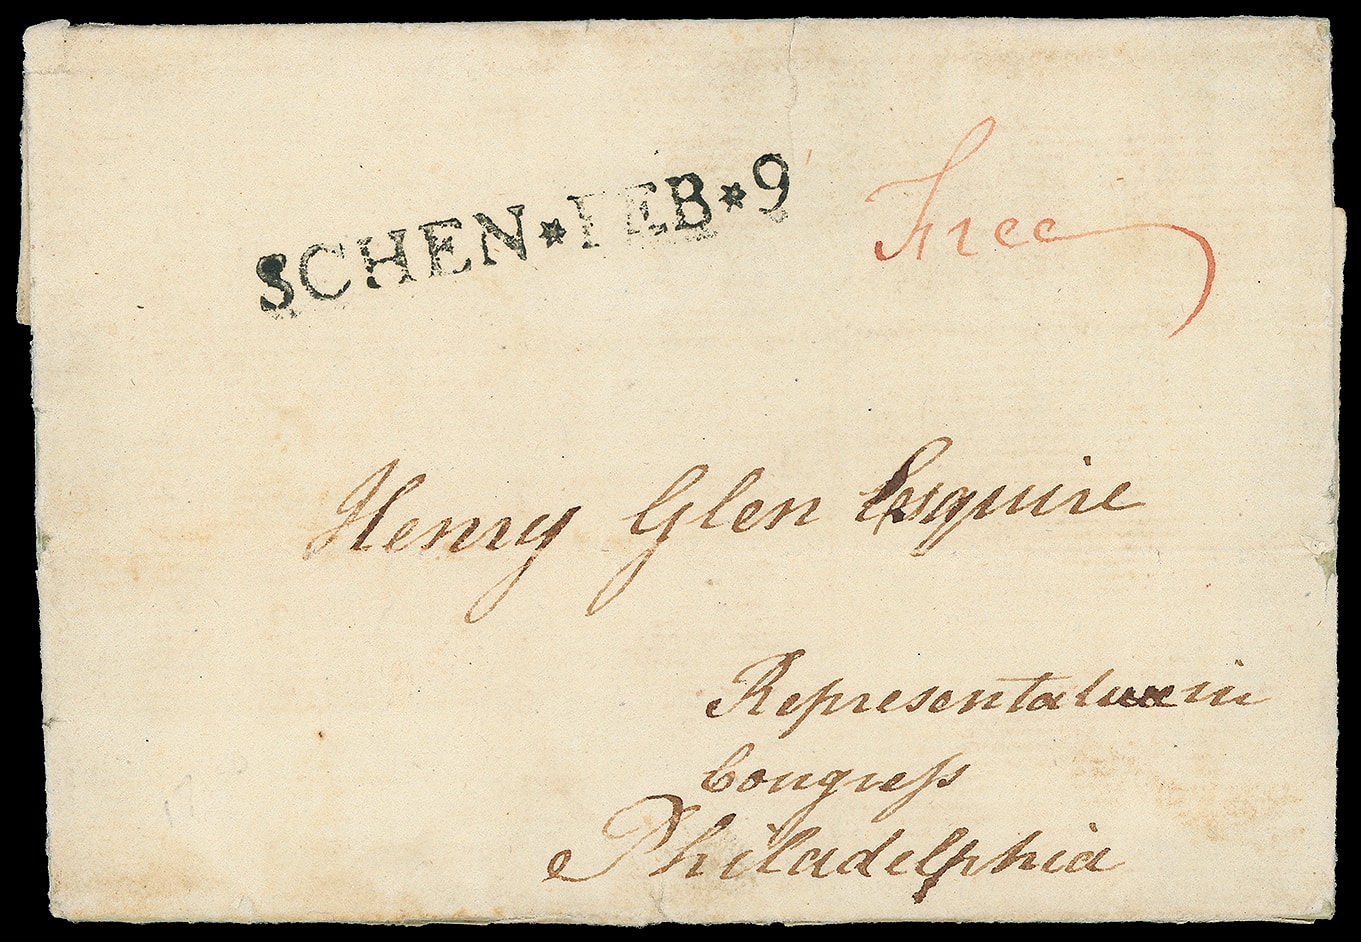 SCHEN★FEB★9
Free
Henry Glen Esquire
Representative in
Congreſs
Philadelphia